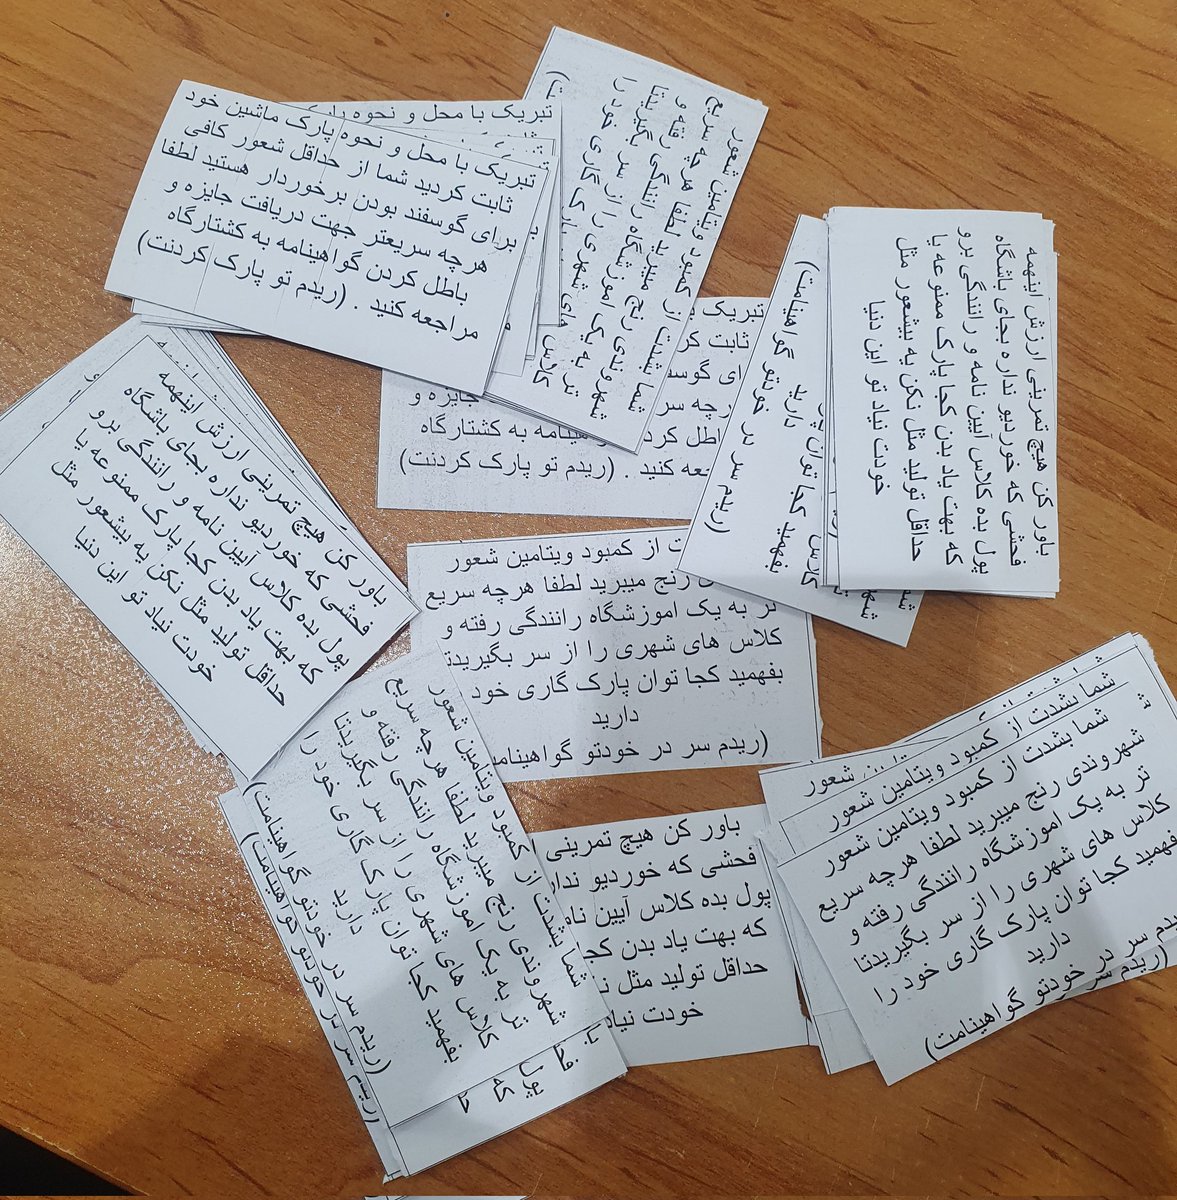 تبریک با محل و نحوه
تبریک با محل و نحوه پارک ماشین خود
ثابت کردید شما از حداقل شعور کافی
برای گوسفند بودن برخوردار هستید لطفا
هرچه سریعتر جهت دریافت جایزه و
باطل کردن گواهینامه به کشتارگاه
مراجعه کنید . (ریدم تو پارک کردنت)
شما بشدت از کمبود ویتامین شعور
شهروندی رنج میبرید لطفا هرچه سریع
تر به یک اموزشگاه رانندگی رفته و
کلاس های شهری را از سر بگیریدتا
گاری خود را
باور کن هیچ تمرینی ارزش اینهمه
فحشی که خوردیو نداره بجای باشگاه
پول بده کلاس آیین نامه و رانندگی برو
که بهت یاد بدن کجا پارک ممنوعه یا
حداقل تولید مثل نکن یه بیشعور مثل
خودت نیاد تو این دنیا
کلاس
بفهمید کجا توان
دارید
(ریدم سر در خودتو گواهینامت)
تبریک
ثابت
جایزه و
به کشتارگاه
کنید . (ریدم تو پارک کردنت)
باور کن هیچ تمرینی ارزش اینهمه
فحشی که خوردیو نداره بجای باشگاه
پول بده کلاس آیین نامه و رانندگی برو
که بهت یاد بدن کجا پارک ممنوعه یا
حداقل تولید مثل نکن یه بیشعور مثل
خودت نیاد تو این دنیا
از کمبود ویتامین شعور
رنج میبرید لطفا هرچه سریع
تر به یک اموزشگاه رانندگی رفته و
کلاس های شهری را از سر بگیریدتا
بفهمید کجا توان پارک گاری خود
دارید
(ریدم سر در خودتو گواهینامت
شما بشدت از کمبود ویتامین شعور
شهروندی رنج میبرید لطفا هرچه سریع
تر به یک اموزشگاه رانندگی رفته و
کلاس های شهری را از سر بگیریدتا
بفهمید کجا توان پارک گاری خود را
دارید
(ریدم سر در خودتو گواهینامت)
(ریدم سر در خودتو گواهینامت)
باور کن هیچ تمرینی
فحشی که خوردیو
پول بده کلاس آیین
که بهت یاد بدن
حداقل تولید مثل
خودت
شعور
شما بشدت از کمبود ویتامین شعور
شما بشدت از کمبود ویتامین شعور
شهروندی رنج میبرید لطفا هرچه سریع
تر به یک اموزشگاه رانندگی رفته و
کلاس های شهری را از سر بگیریدتا
بفهمید کجا توان پارک گاری خود را
دارید
سر در خودتو گواهینامت)
(ریدم